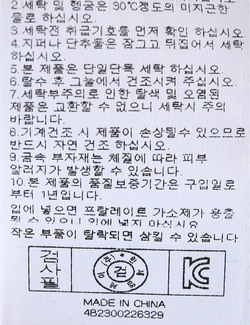 2.세탁 및 헹굼은 30℃정도의 미지근한
물로 하십시오.
3.세탁전 취급기호를 먼저 확인 하십시오
4.지퍼나 단추물은 잠그고 뒤집어서 세탁
하십시오.
5.본 제품은 단일단독 세탁 하십시오.
6.탈수 후 그늘에서 건조시켜 주십시오.
7.세탁부주의로 인한 탈색 및 오염된
제품은 교환할 수 없으니 세탁시 주의
바랍니다.
8.기계건조 시 제품이 손상될수 있으므로
반드시 자연 건조 하십시오.
9.금속 부자재는 체질에 따라 피부
알러지가 발생할 수 있습니다.
10.본 제품의 품질보증기간은 구입일로
부터 1년입니다.
입에 넣으면 프탈레이트 가소제가 용출
될 수 있으니 입에 넣지 마십시요
작은 부품이 탈락되면 삼킬 수 있습니다
검사필
검
KC
MADE IN CHINA
482300226329